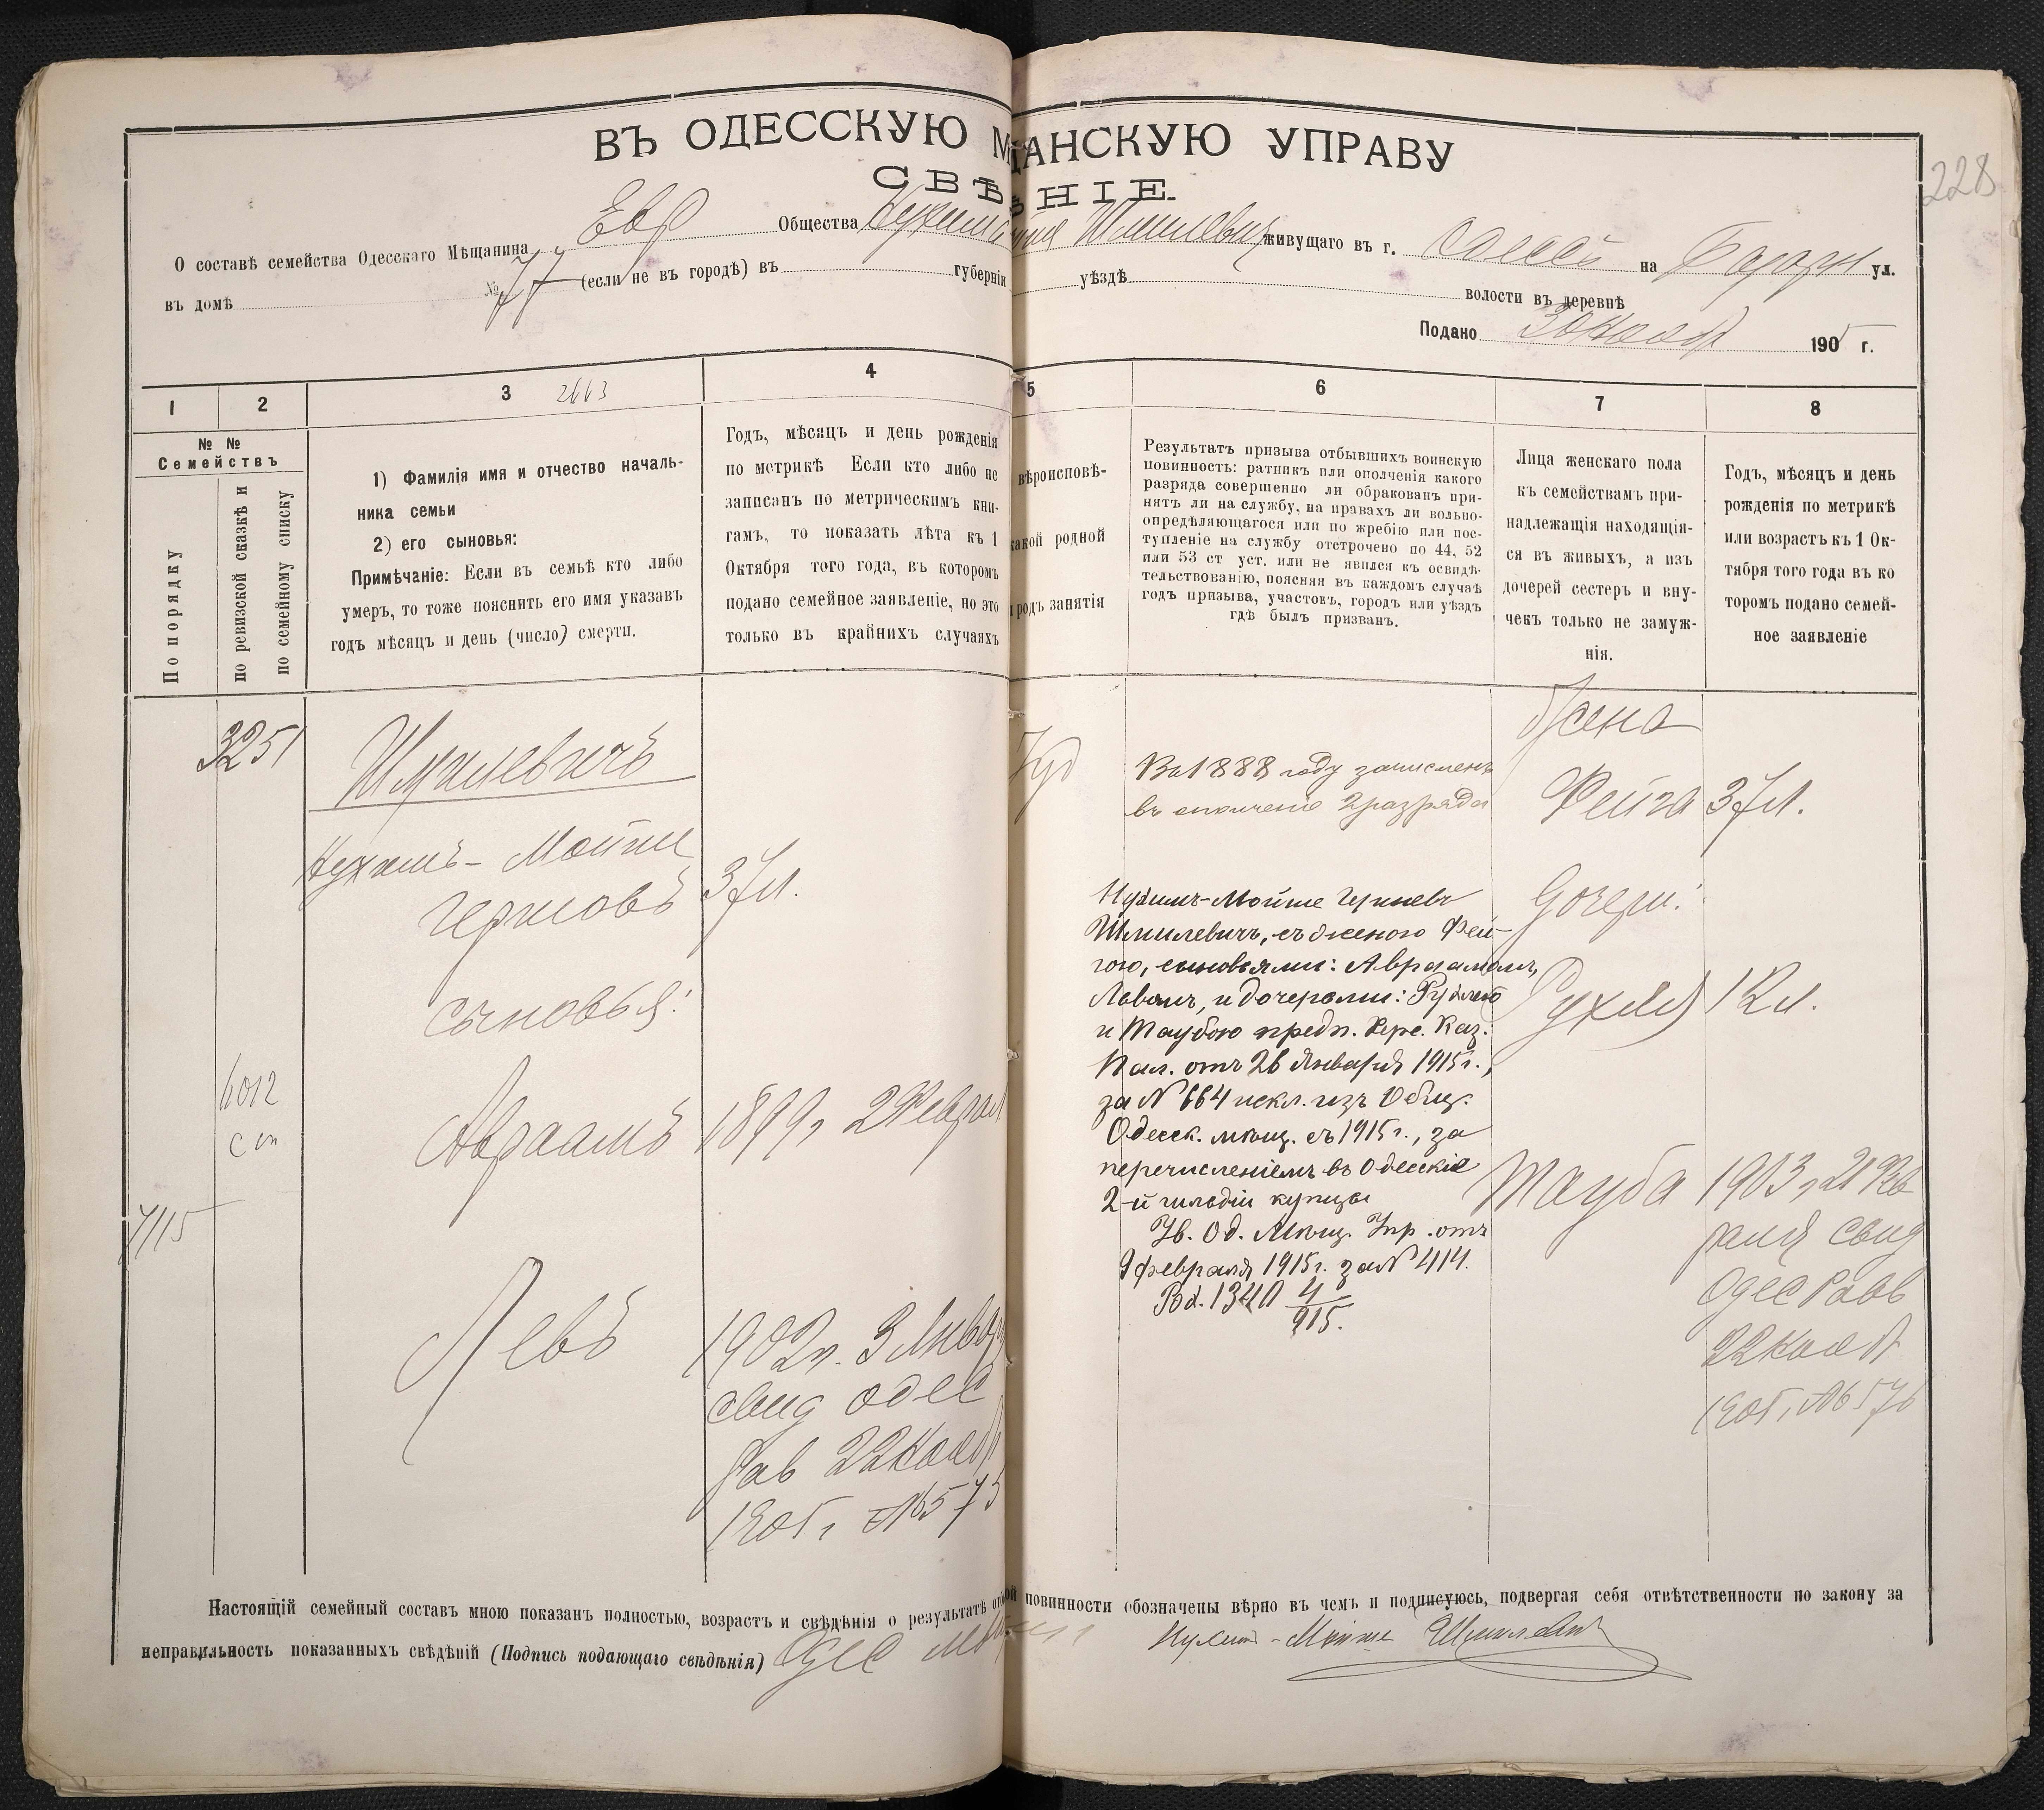 ВЪ ОДЕССКУЮ М
ЩАНСКУЮ УПРАВУ
СВѢ
НІЕ.
228
О составѣ семейства Одесскаго Мѣщанина Евр Общества Нухима
Мойше Шмилевич живущаго въ г. Одессѣ на Базарн ул.
въ домѣ № 77 (если не въ городѣ) въ губерніи
уѣздѣ волости въ деревнѣ
Подано 30 Нояб 1905 г.
1
2
3 2663
4
5
6
7
8
№ №
Семействъ
По порядку
по ревизской сказкѣ и
по семейному списку
1) Фамилія имя и отчество началь-
ника семьи
2) его сыновья:
Примѣчаніе: Если въ семьѣ кто либо
умеръ, то тоже пояснить его имя указавъ
годъ мѣсяцъ и день (число) смерти.
Годъ, мѣсяцъ и день рожденія
по метрикѣ Если кто либо не
записанъ по метрическимъ кни-
гамъ, то показать лѣта къ 1
Октября того года, въ которомъ
подано семейное заявленіе, но это
только въ крайнихъ случаяхъ
вѣроисповѣ-
какой родной
родъ занятія
Результатъ призыва отбывшихъ воинскую
повинность: ратникъ или ополченія какого
разряда совершенно ли обракованъ при-
нятъ ли на службу, на правахъ ли вольно-
опредѣляющагося или по жребію или пос-
тупленіе на службу отстрочено по 44, 52
или 53 ст уст. или не явился къ освидѣ-
тельствованію, поясняя въ каждомъ случаѣ
годъ призыва, участокъ, городъ или уѣздъ
гдѣ былъ призванъ.
Лица женскаго пола
къ семействамъ при-
надлежащія находящія-
ся въ живыхъ, а изъ
дочерей сестеръ и вну-
чекъ только не замуж-
нія.
Годъ, мѣсяцъ и день
рожденія по метрикѣ
или возрастъ къ 1 Ок-
тября того года въ ко
торомъ подано семей-
ное заявленіе
3251
Шмилевичъ
Нухимъ-Мойше
Гершовъ
37 л.
сыновья:
6012
сп
Авраамъ
1899 г 2 Феврал
7115
Левъ
1902 г. 3 Январ
свид Одес
Рав 22 Нояб
1905 г, №573
Іуд
Въ 1888 году зачисленъ
въ ополченіе 2 разряда
Нухимъ-Мойше Гершевъ
Шмилевичъ, съ женою Фей-
гою, сыновьями: Авраамомъ,
Левомъ, и дочерями: Рухлею
и Таубою предп. Хере. Каз.
Пал. отъ 26 Января 1915 г.,
за № 664 искл. изъ Общ.
Одесск. мѣщ. съ 1915 г., за
перечисленіемъ въ Одесскіе
2-й гильдіи купцы
Ув. Од. Мѣщ. Упр. отъ
9 февраля 1915 г. за № 414.
Вх. 1340 4/915.
Жена
Фейга
37 л.
Дочери:
Рухля
12 л.
Тауба
1903 г, 21 Фев
раля свид
Одес Рав
22 Нояб
1905 г, №576
Настоящій семейный составъ мною показанъ полностью, возрастъ и свѣдѣнія о результатѣ отб
ой повинности обозначены вѣрно въ чемъ и подписуюсь, подвергая себя отвѣтственности по закону за
неправильность показанныхъ свѣдѣній (Подпись подающаго свѣдѣнія) Одес
Нухим-Мойше Шмилевич